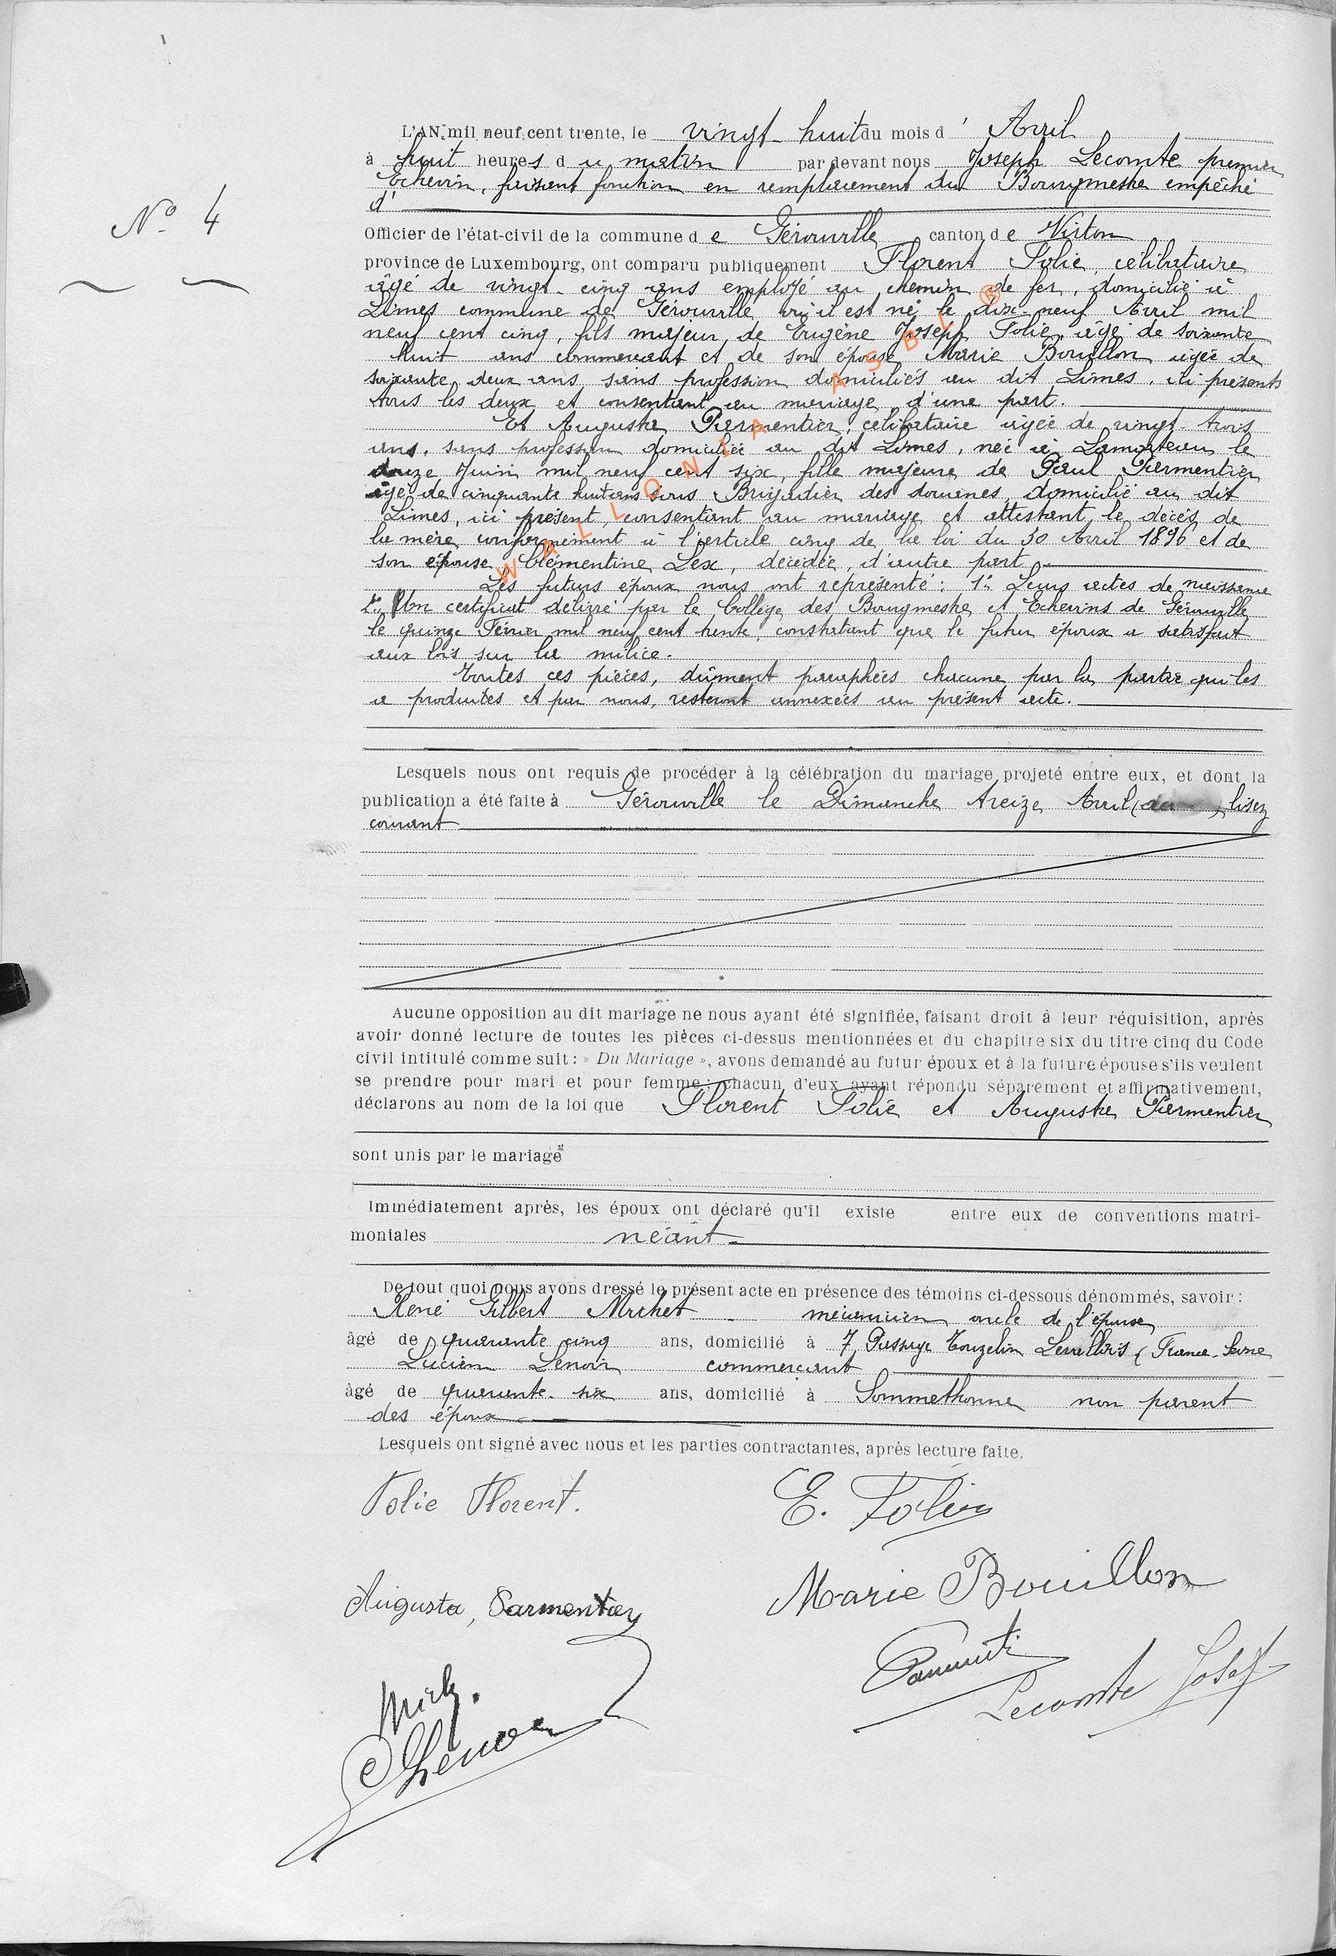 L'AN mil neuf cent trente, le vingt-huit du mois d' Avril
à huit heures du matin par devant nous Joseph Lecomte premier
Echevin, faisant fonction en remplacement du Bourgmestre empêché
d'
N° 4
Officier de l'état-civil de la commune de Gérouville canton de Virton
province de Luxembourg, ont comparu publiquement Florent Folie, célibataire
âgé de vingt-cinq ans employé au chemin de fer, domicilié à
Limes commune de Gérouville où il est né le dix-neuf Avril mil
neuf cent cinq, fils majeur de Eugène Joseph Folie, âgé de soixante
huit ans commerçant et de son épouse Marie Bouillon âgée de
soixante deux ans, sans profession domiciliés au dit Limes, ici présents
tous les deux et consentant au mariage, d'une part.
Et Augusta Parmentier, célibataire âgée de vingt-trois
ans, sans profession domiciliée au dit Limes, née à Lamorteau le
douze Juin mil neuf cent six, fille majeure de Paul Parmentier
âgé de cinquante huit ans sous Brigadier des douanes, domicilié au dit
Limes, ici présent, consentant au mariage et attestant le décès de
la mère conformément à l'article cinq de la loi du 30 Avril 1896 et de
son épouse Clémentine Lex, décédée, d'autre part.
Les futurs époux nous ont représenté: 1° Leurs actes de naissance
2° Un certificat délivré par le Collège des Bourgmestre et Echevins de Gérouville
le quinze Février mil neuf cent trente, constatant que le futur époux a satisfait
aux lois sur la milice.
Toutes ces pièces, dûment paraphées chacune par la partie qui les
a produites et par nous, resteront annexées au présent acte.
Lesquels nous ont requis de procéder à la célébration du mariage projeté entre eux, et dont la
publication a été faite à Gérouville le Dimanche treize Avril lisez
courant
Aucune opposition au dit mariage ne nous ayant été signifiée, faisant droit à leur réquisition, après
avoir donné lecture de toutes les pièces ci-dessus mentionnées et du chapitre six du titre cinq du Code
civil intitulé comme suit: » Du Mariage », avons demandé au futur époux et à la future épouse s'ils veulent
se prendre pour mari et pour femme; chacun d'eux ayant répondu séparément et affirmativement,
déclarons au nom de la loi que Florent Folie et Augusta Parmentier
sont unis par le mariage
Immédiatement après, les époux ont déclaré qu'il existe entre eux de conventions matri-
moniales néant
De tout quoi nous avons dressé le présent acte en présence des témoins ci-dessous dénommés, savoir:
René Gilbert Michet mécanicien oncle de l'épouse
âgé de quarante cinq ans, domicilié à 7, Passage Touzelin Levallois (France-Seine
Lucien Lenoir commerçant
âgé de quarante-six ans, domicilié à Sommethonne non parent
des époux
Lesquels ont signé avec nous et les parties contractantes, après lecture faite.
Folie Florent.
E. Folie
Augusta, Parmentier
Marie Bouillon
Lecomte Josef
Lenoir
WALLONIA ASBL ®